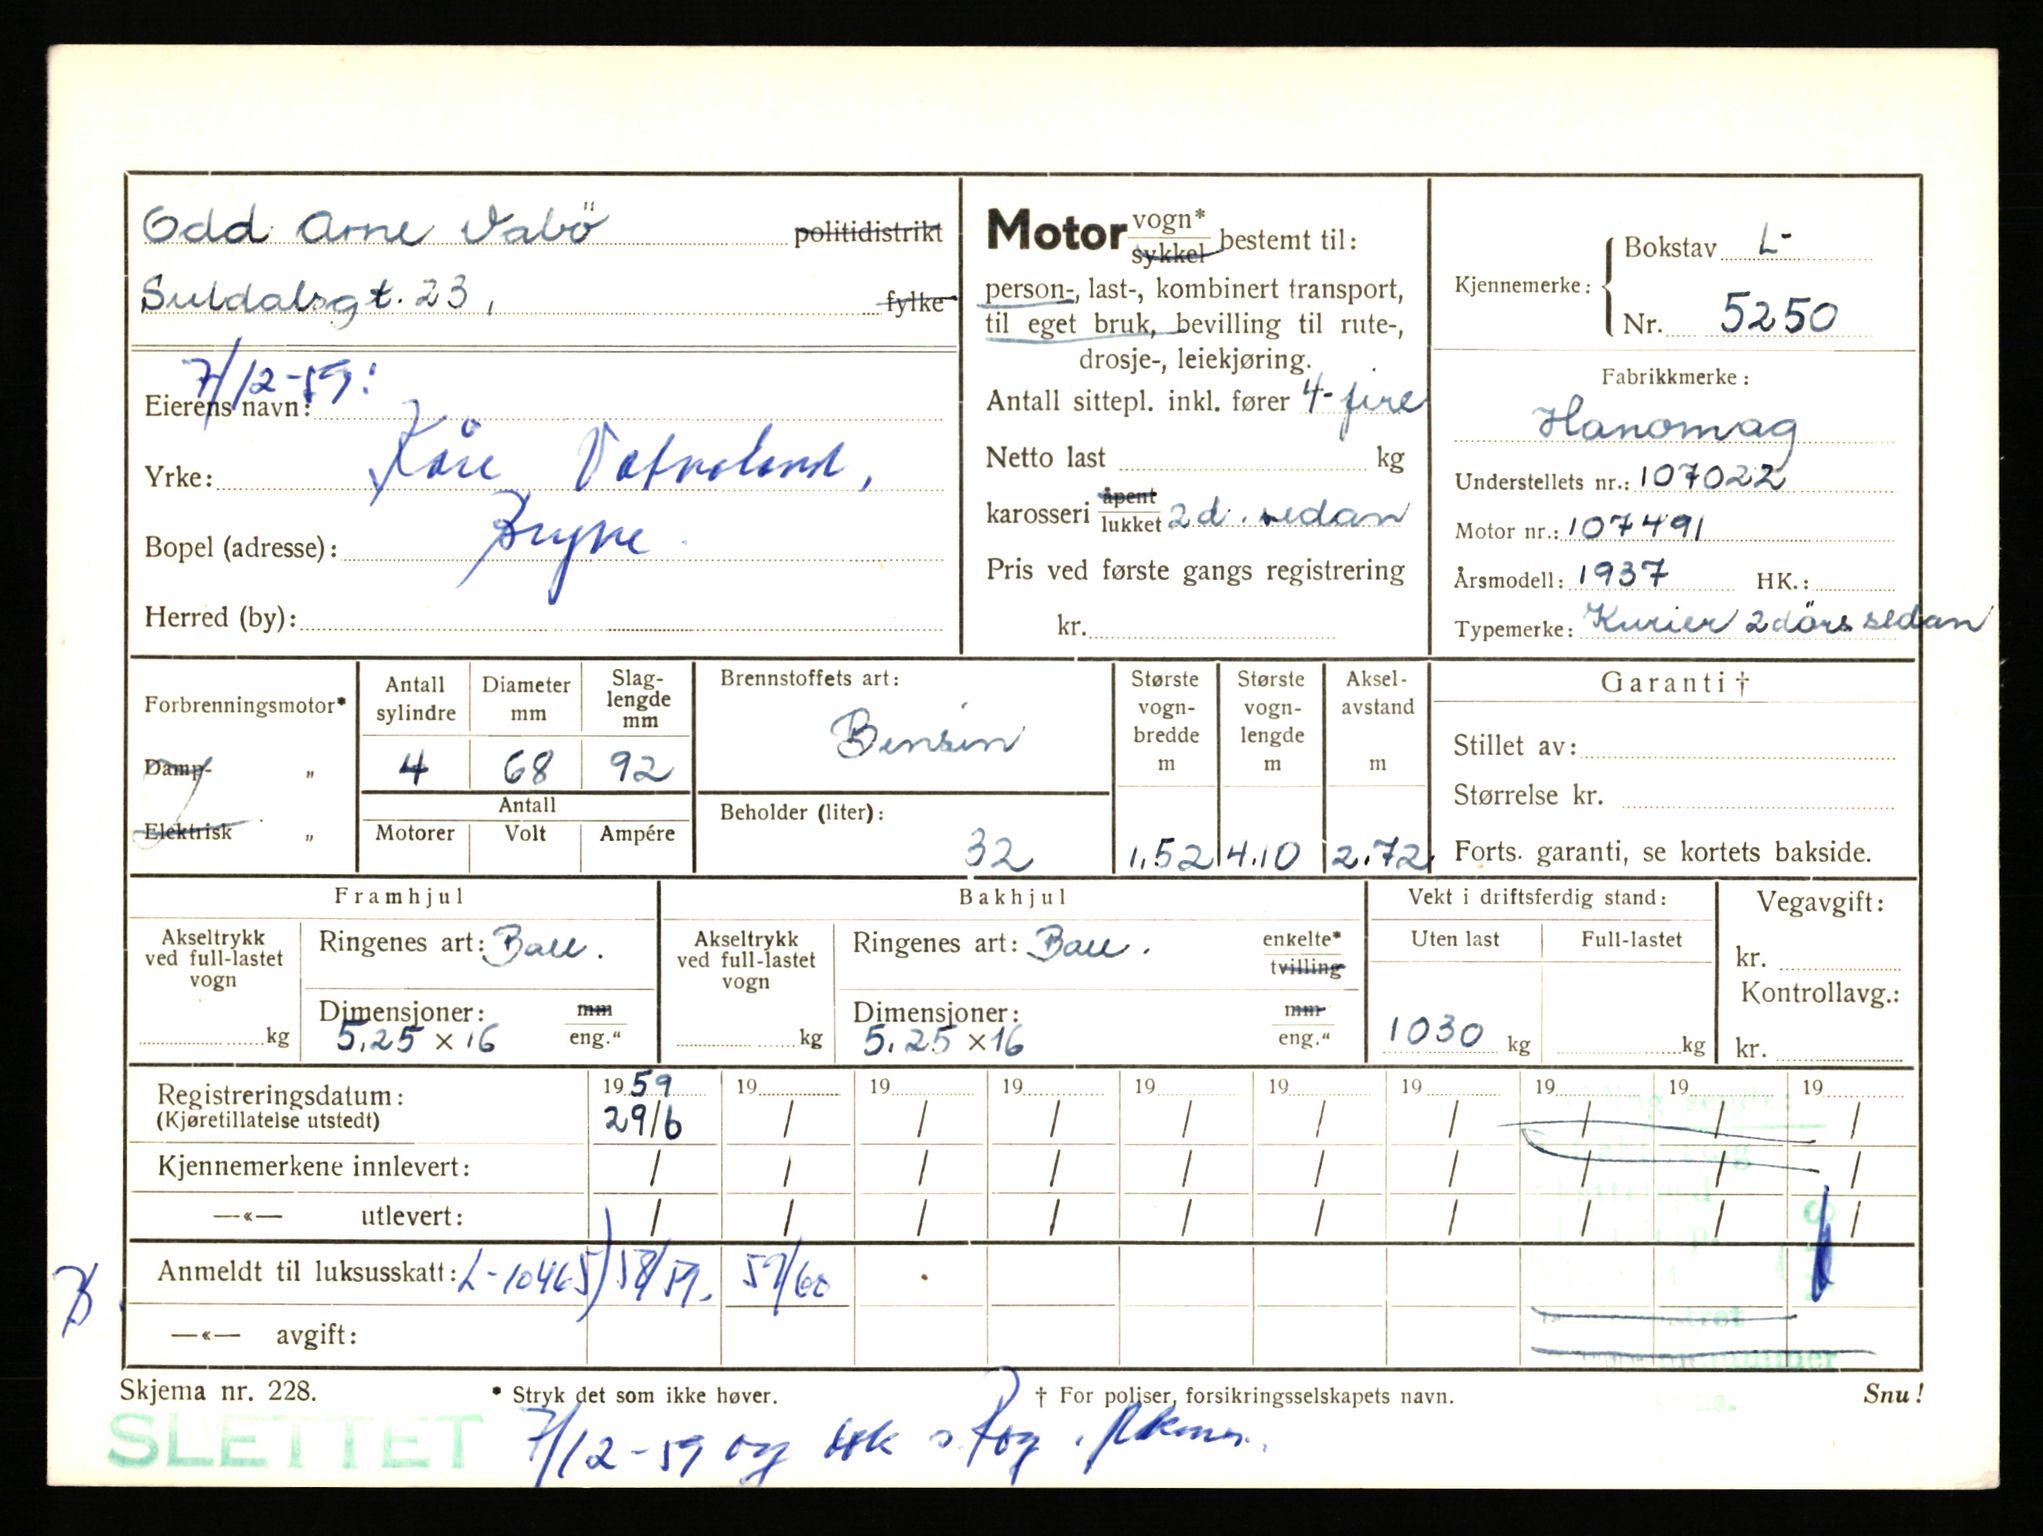 Odd Arne Vabö politidistrikt
Suldalsgt. 23, fylke
7/12-59:
Eierens navn:
Kåre Vatneland,
Yrke:
Bryne
Bopel (adresse):
Herred (by):
Motor vogn* sykkel bestemt til:
person-, last-, kombinert transport,
til eget bruk, bevilling til rute-,
drosje-, leiekjøring.
Antall sittepl. inkl. fører 4-fire
Netto last kg
karosseri åpent lukket 2d. sedan
Pris ved første gangs registrering
kr.
Kjennemerke: Bokstav L-
Nr. 5250
Fabrikkmerke:
Hanomag
Understellets nr.: 107022
Motor nr.: 107491
Årsmodell: 1937 HK.:
Typemerke: Kurier 2dörs sedan
Forbrenningsmotor*
Damp- "
Elektrisk "
Antall sylindre
Diameter mm
Slag-lengde mm
4 68 92
Antall
Motorer Volt Ampére
Brennstoffets art:
Bensin
Beholder (liter):
32
Største vogn-bredde m
1.52
Største vogn-lengde m
4.10
Aksel-avstand m
2.72
Garanti †
Stillet av:
Størrelse kr.
Forts. garanti, se kortets bakside.
Framhjul
Akseltrykk ved full-lastet vogn
kg
Ringenes art: Ball.
Dimensjoner: mm eng."
5.25 × 16
Bakhjul
Akseltrykk ved full-lastet vogn
kg
Ringenes art: Ball. enkelte* tvilling
Dimensjoner: mm eng."
5.25 × 16
Vekt i driftsferdig stand:
Uten last Full-lastet
1030 kg kg
Vegavgift:
kr.
Kontrollavg.:
kr.
Registreringsdatum: 1959 19 19 19 19 19 19 19 19 19
(Kjøretillatelse utstedt) 29/6 / / / / / / / / /
Kjennemerkene innlevert: / / / / / / / / / /
—«— utlevert: / / / / / / / / / /
Anmeldt til luksusskatt: L-10465) 58/59. 59/60
—«— avgift:
Skjema nr. 228.
* Stryk det som ikke høver.
† For poliser, forsikringsselskapets navn.
Snu!
SLETTET
7/12-59 og